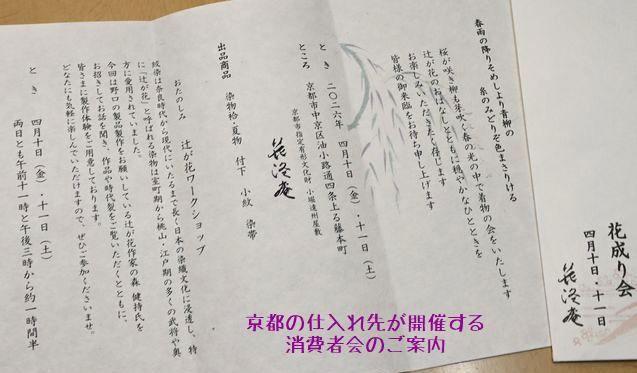 春雨の降りそめしより青柳の
糸のみどりぞ色まさりける
桜が咲き柳も芽吹く春の光の中で着物の会をいたします
辻が花のおはなしとともに穏やかなひとときを
お楽しみいただきたく存じます
皆様の御来臨をお待ち申し上げます
とき 二〇二六年 四月十日(金)・十一日(土)
ところ 京都市中京区油小路通四条上る藤本町
京都市指定有形文化財 小堀遠州屋敷
花洛庵
出品商品 染物袷・夏物 付下 小紋 染帯
おたのしみ 辻が花ワークショップ
絞染は奈良時代から現代にいたるまで長く日本の染織文化に浸透し、特
に「辻が花」と呼ばれる染物は室町期から桃山・江戸期の多くの武将や奥
方に愛用されていました。
今回は野口の製品製作をお願いしている辻が花作家の森 健持氏を
お招きしてお話を聞き、作品や時代裂をご覧いただくとともに、
皆さまに製作体験をご用意しております。
どなたにも気軽に楽しんでいただけますので、ぜひご参加くださいませ。
とき 四月十日(金)・十一日(土)
両日とも午前十一時と午後三時から約一時間半
花成り会
四月十日・十一日
花洛庵
京都の仕入れ先が開催する
消費者会のご案内